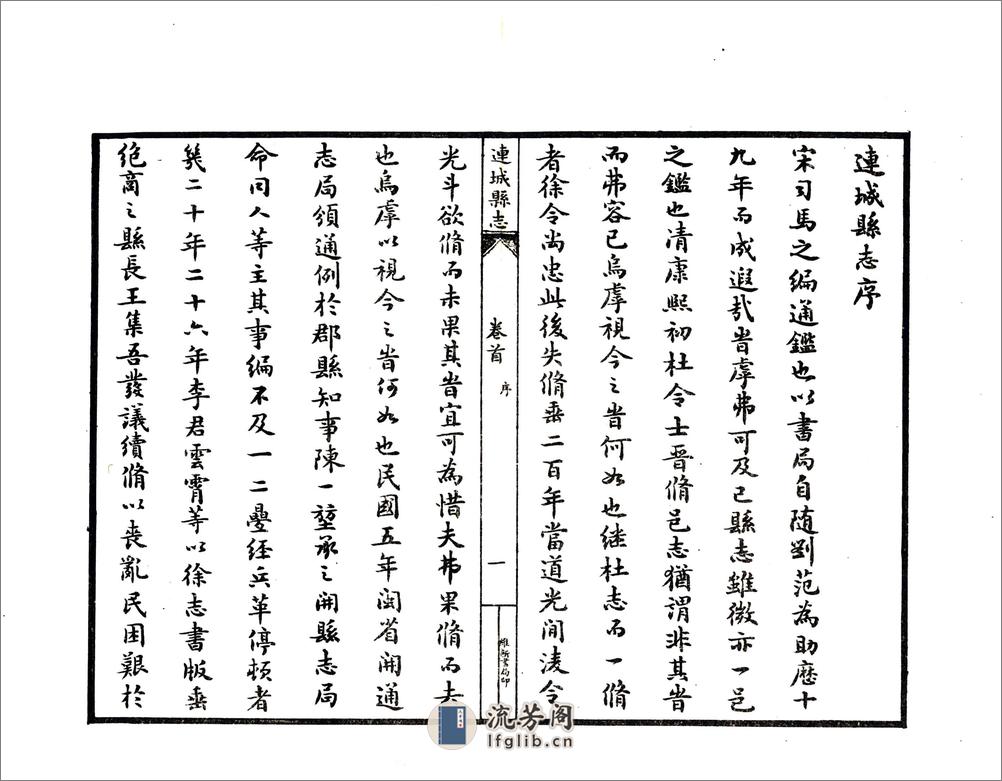 連城縣志序
宋司馬之編通鑑也以書局自随劉范為助歷十
九年而成遐㢤旹虖弗可及已縣志雖微亦一邑
之鑑也清康熙初杜令士晋脩邑志猶謂非其旹
而弗容已烏虖視今之旹何如也继杜志而一脩
者徐令尚忠此後失脩垂二百年當道光间淩令
連城縣志
卷首
序
一
維新書局印
光斗欲脩而未果其旹宜可為惜夫弗果脩而去
也烏虖以視今之旹何如也民國五年闽省開通
志局頒通例於郡縣知事陳一堃承之開縣志局
命同人等主其事編不及一二疊经兵革停頓者
㡬二十年二十六年李君雲霄等以徐志書版垂
绝商之縣長王集吾發議續脩以丧亂民困艱於
流芳阁
lfglib.cn